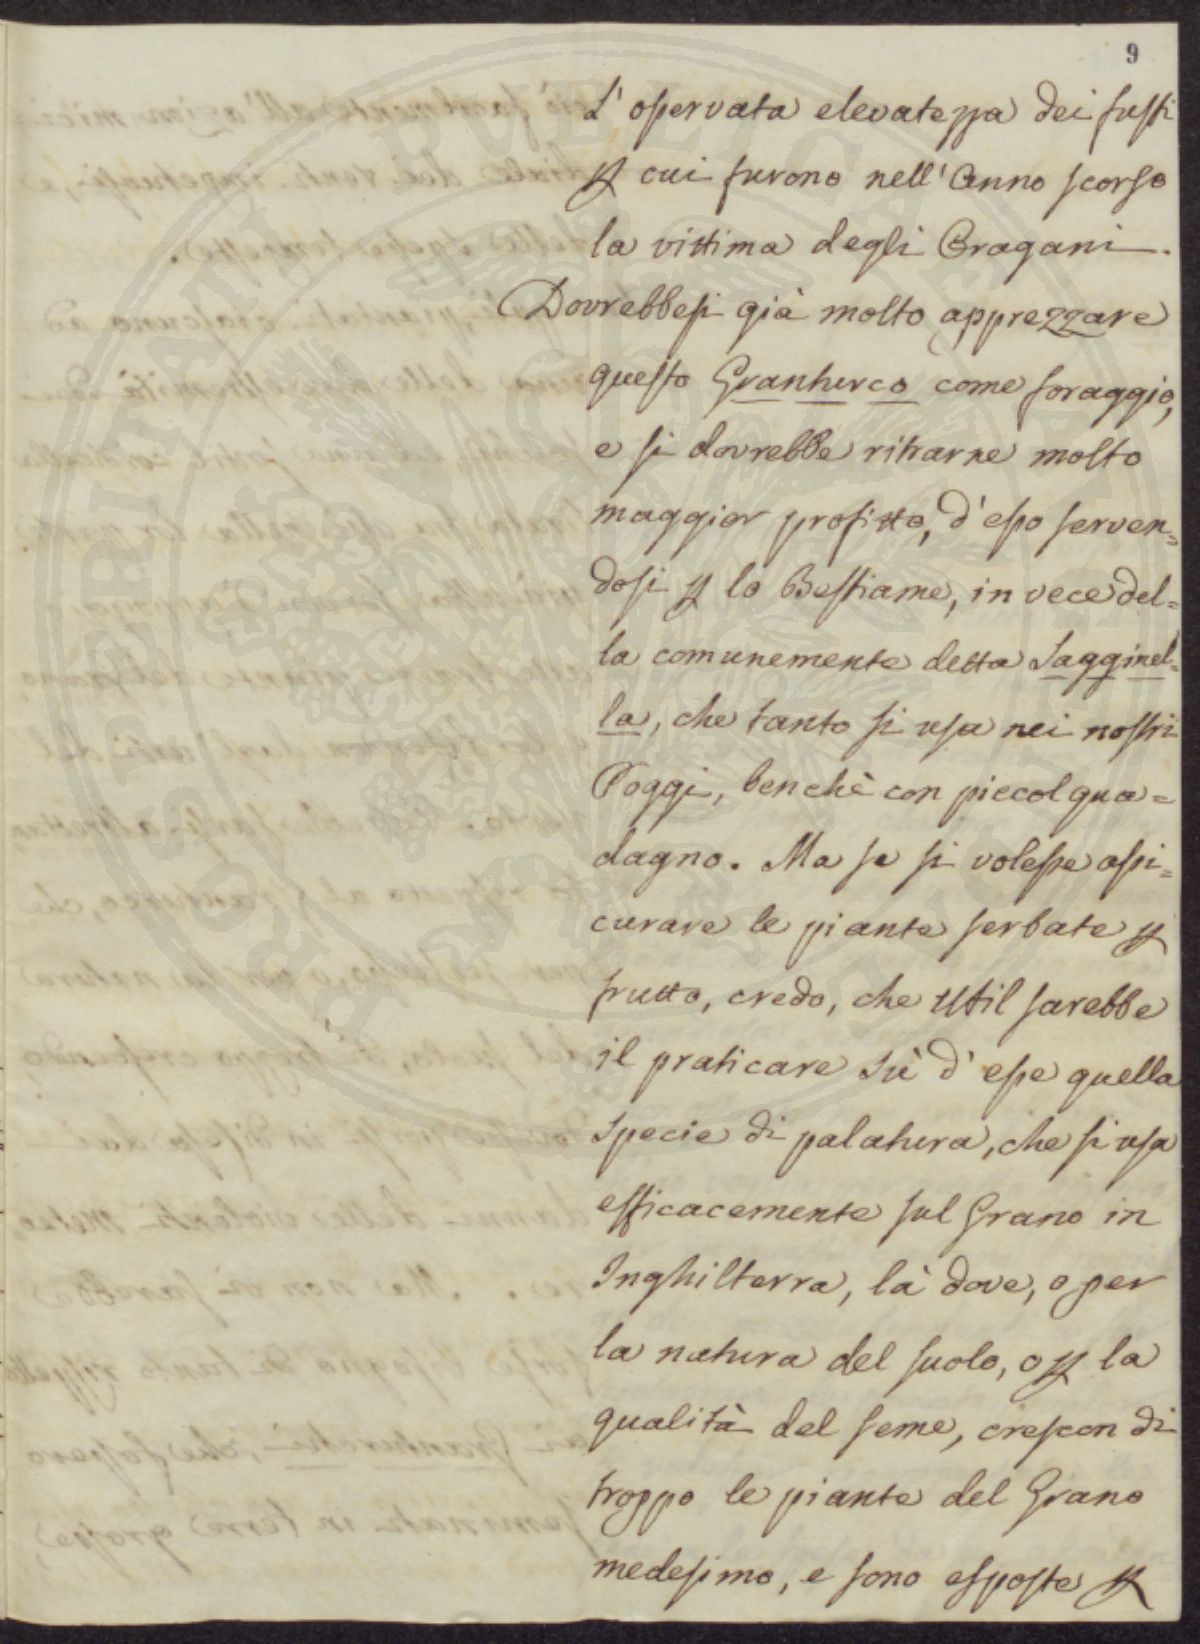 9
L'osservata elevatezza dei fusti
p cui furono nell'Anno scorso
la vittima degli Oragani.
Dovrebbesi già molto apprezzare
questo Granturco come foraggio,
e si dovrebbe ritrarne molto
maggior profitto, d'esso serven=
dosi p lo Bestiame, in vece del=
la comunemente detta Sagginel=
la, che tanto si usa nei nostri
Poggi, benchè con piccol gua=
dagno. Ma se si volesse assi=
curare le piante serbate p
frutto, credo, che util sarebbe
il praticare sù d'esse quella
specie di palatura, che si usa
efficacemente sul Grano in
Inghilterra, là dove, o per
la natura del suolo, o p la
qualità del seme, crescon di
troppo le piante del Grano
medesimo, e sono esposte p
PUBLICAE
POSTERITATI